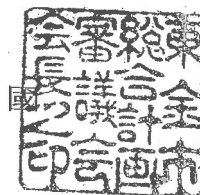 東金市
総合計画
審議会
会長之印
國